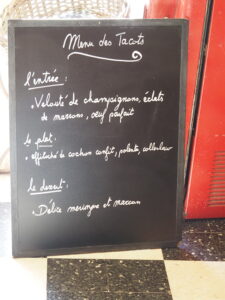 Menu des Tacots
l'entrée :
• Velouté de champignons, éclats
de marrons, œuf parfait
le plat :
• effiloché de cochon confit, polenta,
le dessert :
• Délice meringue et marron